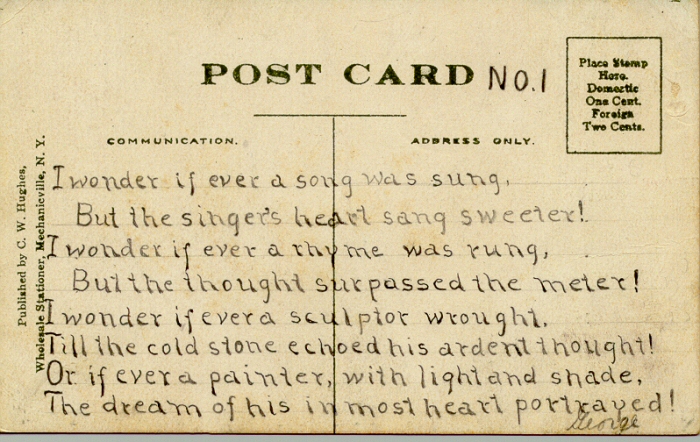 POST CARD NO.1
Place Stamp
Here.
Domestic
One Cent.
Foreign
Two Cents.
COMMUNICATION.
ADDRESS ONLY.
Published by C. W. Hughes,
Wholesale Stationer, Mechanicville, N. Y.
I wonder if ever a song was sung,
But the singer's heart sang sweeter!
I wonder if ever a rhyme was rung,
But the thought surpassed the meter!
I wonder if ever a sculptor wrought,
Till the cold stone echoed his ardent thought!
Or if ever a painter, with light and shade,
The dream of his inmost heart portrayed!
George